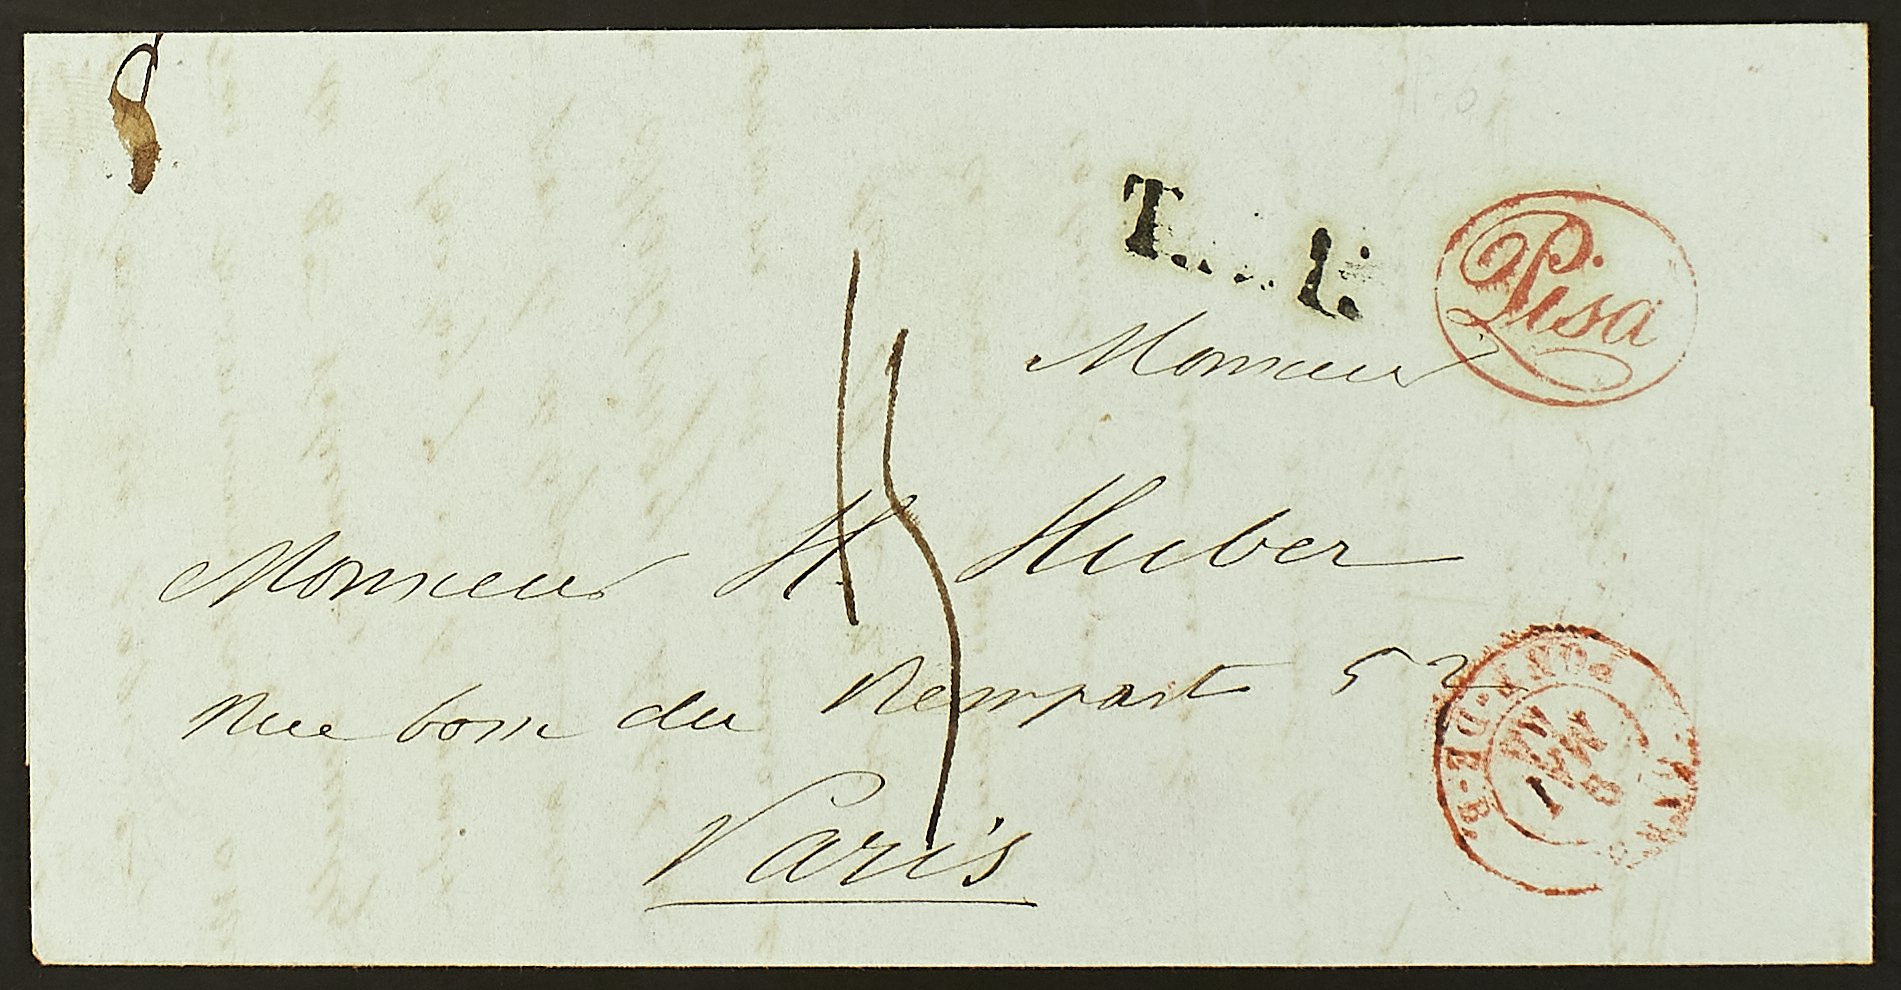 Pisa
Monsieur
Monsieur H Huber
Rue basse du Rempart 52
Paris
PONT-DE-B.
8
MAI
15